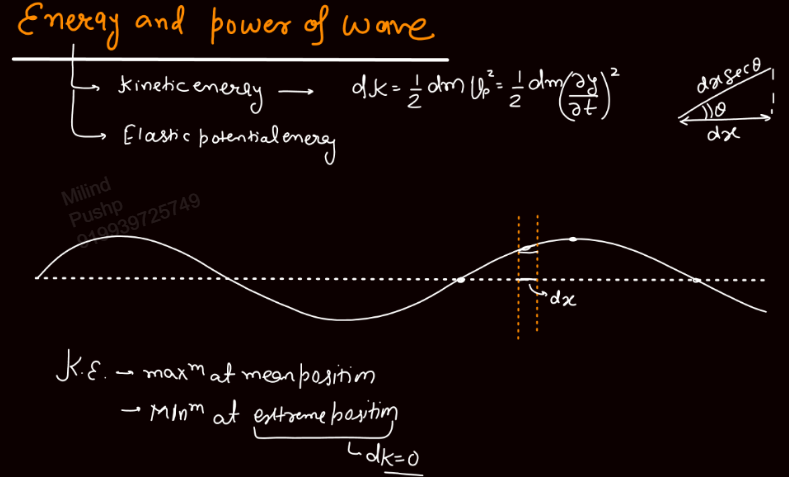 Energy and power of wave
Kinetic energy → dK = 1/2 dm Vp² = 1/2 dm (∂y/∂t)²
dx secθ
θ
dx
Elastic potential energy
Milind
Pushp
919939725749
dx
K.E. → maxᵐ at mean position
→ Minᵐ at extreme position
dK=0